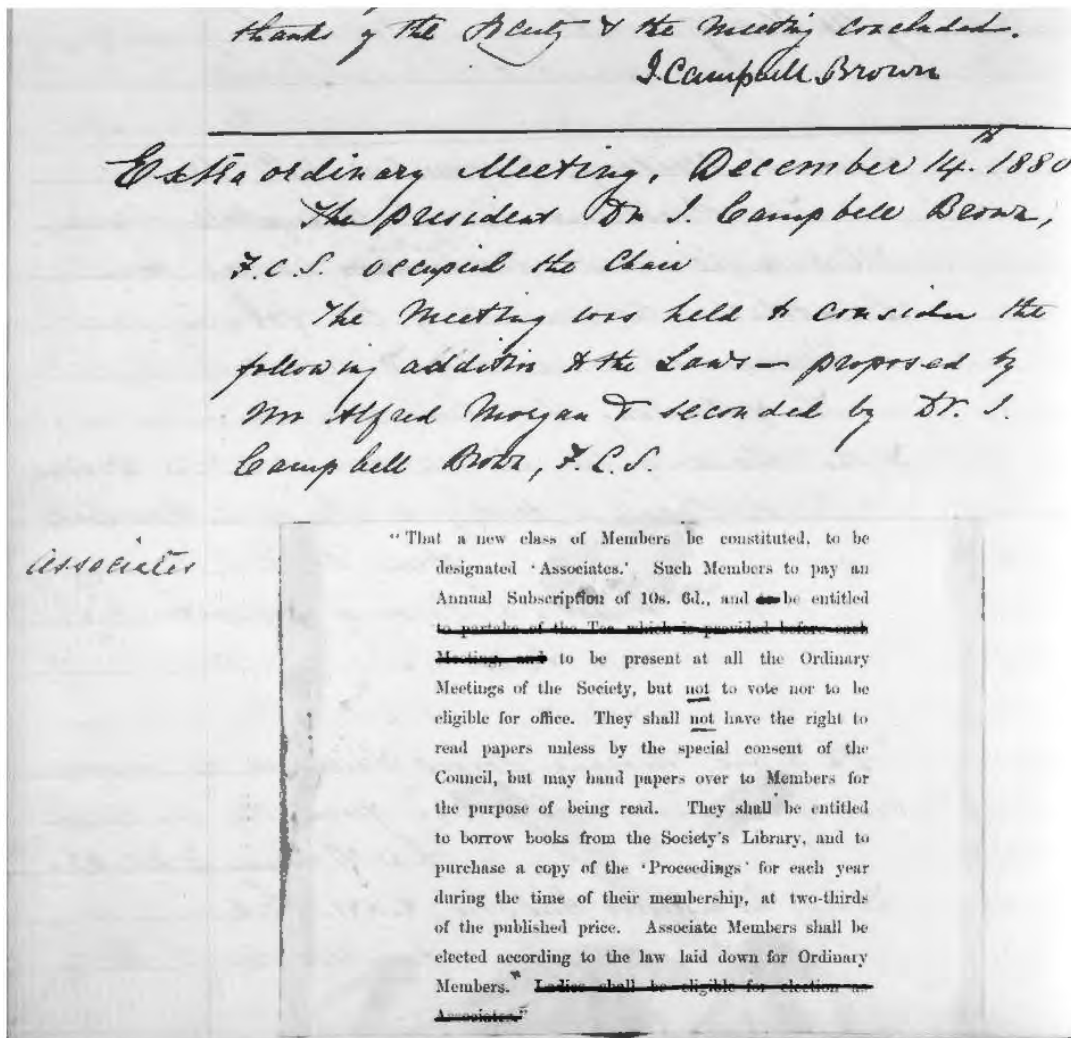 thanks of the Society & the Meeting concluded.
J. Campbell Brown
Extraordinary Meeting, December 14th 1880
The president Dr. J. Campbell Brown,
F.C.S. occupied the Chair
The Meeting was held to consider the
following addition to the Laws — proposed by
Mr Alfred Morgan & seconded by Dr. J.
Campbell Brown, F.C.S.
Associates
"That a new class of Members be constituted, to be
designated 'Associates.' Such Members to pay an
Annual Subscription of 10s. 6d., and be entitled
to partake of the Tea which is provided before each
Meeting, and to be present at all the Ordinary
Meetings of the Society, but not to vote nor to be
eligible for office. They shall not have the right to
read papers unless by the special consent of the
Council, but may hand papers over to Members for
the purpose of being read. They shall be entitled
to borrow books from the Society's Library, and to
purchase a copy of the 'Proceedings' for each year
during the time of their membership, at two-thirds
of the published price. Associate Members shall be
elected according to the law laid down for Ordinary
Members." Ladies shall be eligible for election as
Associates."